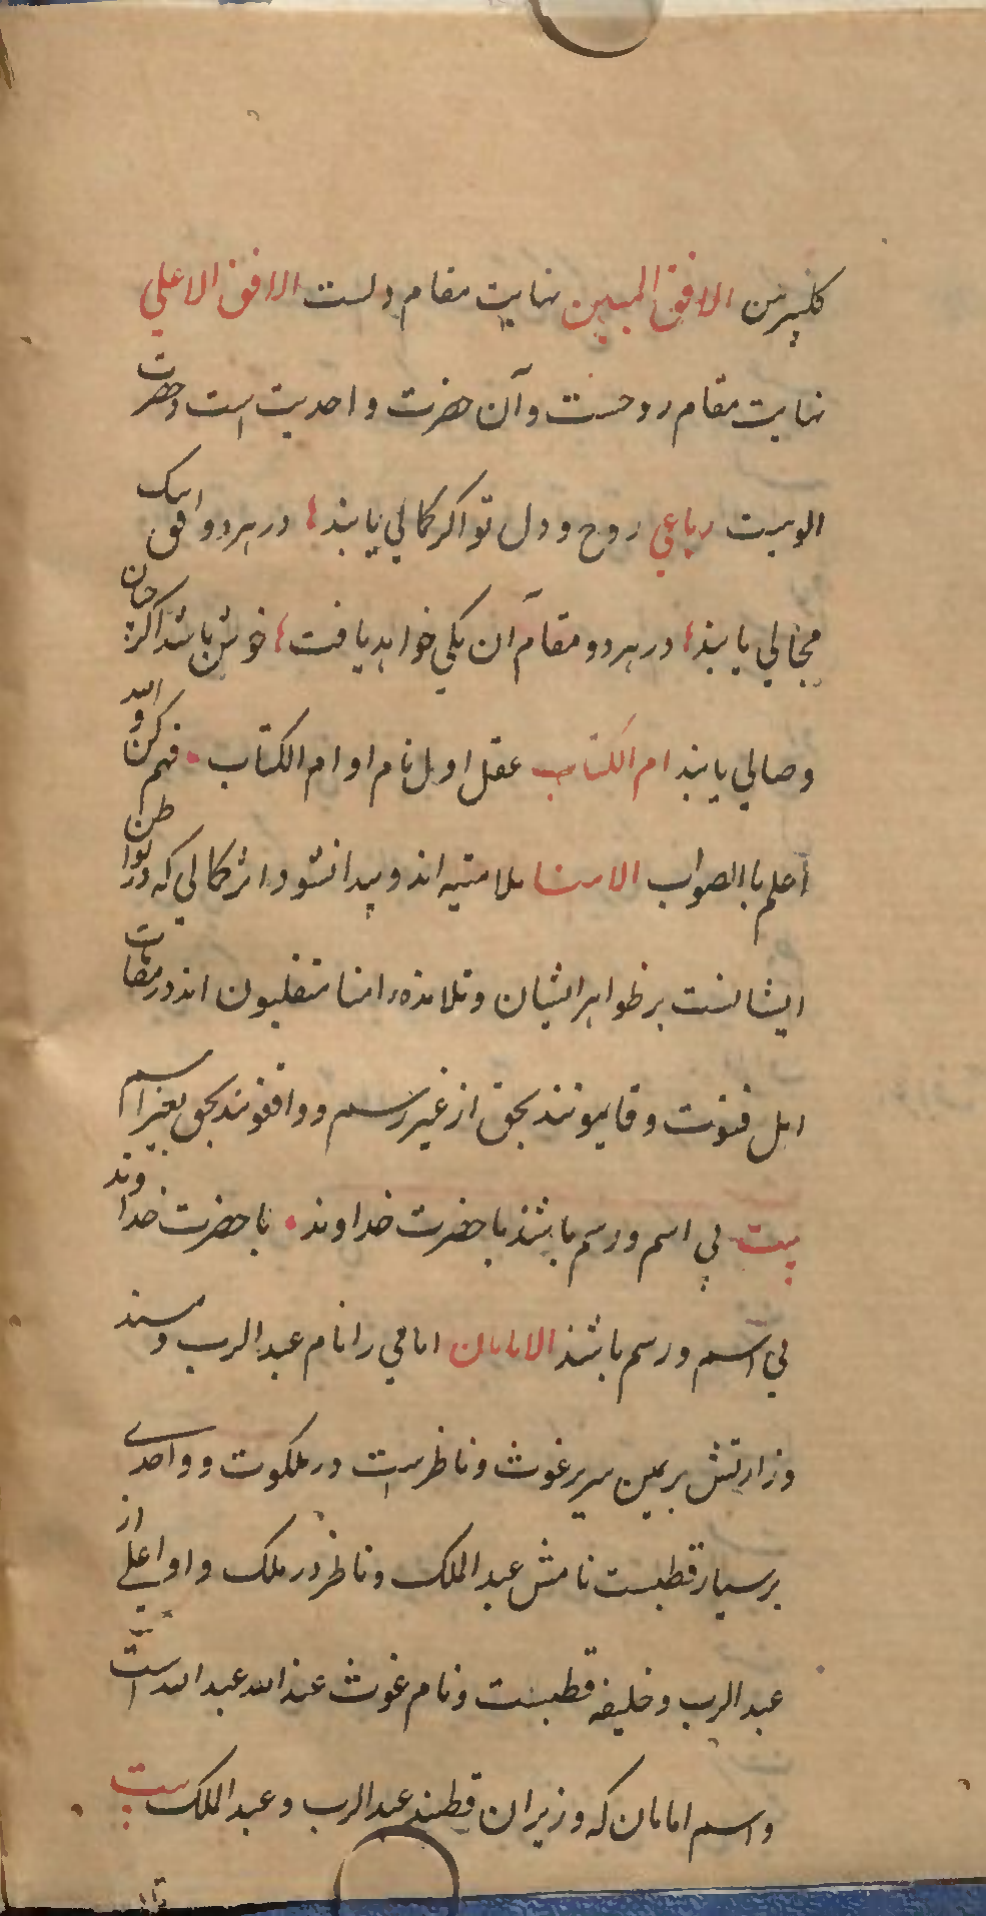 کلپرین الافق المبین نهایت مقام دلست الافق الاعلی
نهایت مقام روحست و آن حضرت واحدیت است وحضرت
الوهیت رباعی روح و دل تو اگر کمالی یابند در هر دو افق
مجالی یابند در هر دو مقام آن یکی خواهد یافت خوش باشد اگر
وصالی یابند ام الکتاب عقل اول نام او ام الکتاب فهم کن والله
اعلم باالصواب الامنا ملامتیه اند و پیدا نشود اثر کمالی که در بواطن
ایشانست بر ظواهر ایشان و تلامذه امنا متقلبون اند در مقامات
اهل فتوت و قایمونند بحق از غیر رسم و واقفونند بحق بغیر اسم
بیت بی اسم و رسم باشد با حضرت خداوند با حضرت خداوند
بی اسم و رسم باشد الامامان امامی را نام عبد الرب و مسند
وزارتش بر یمین سریر غوث و ناظرست در ملکوت و واحدی
بر یسار قطبست نامش عبد الملک و ناظر در ملک و او اعلی از
عبد الرب و خلیفه قطبست و نام غوث عند الله عبد الله است
و اسم امامان که وزیران قطبند عبد الرب و عبد الملک بیت